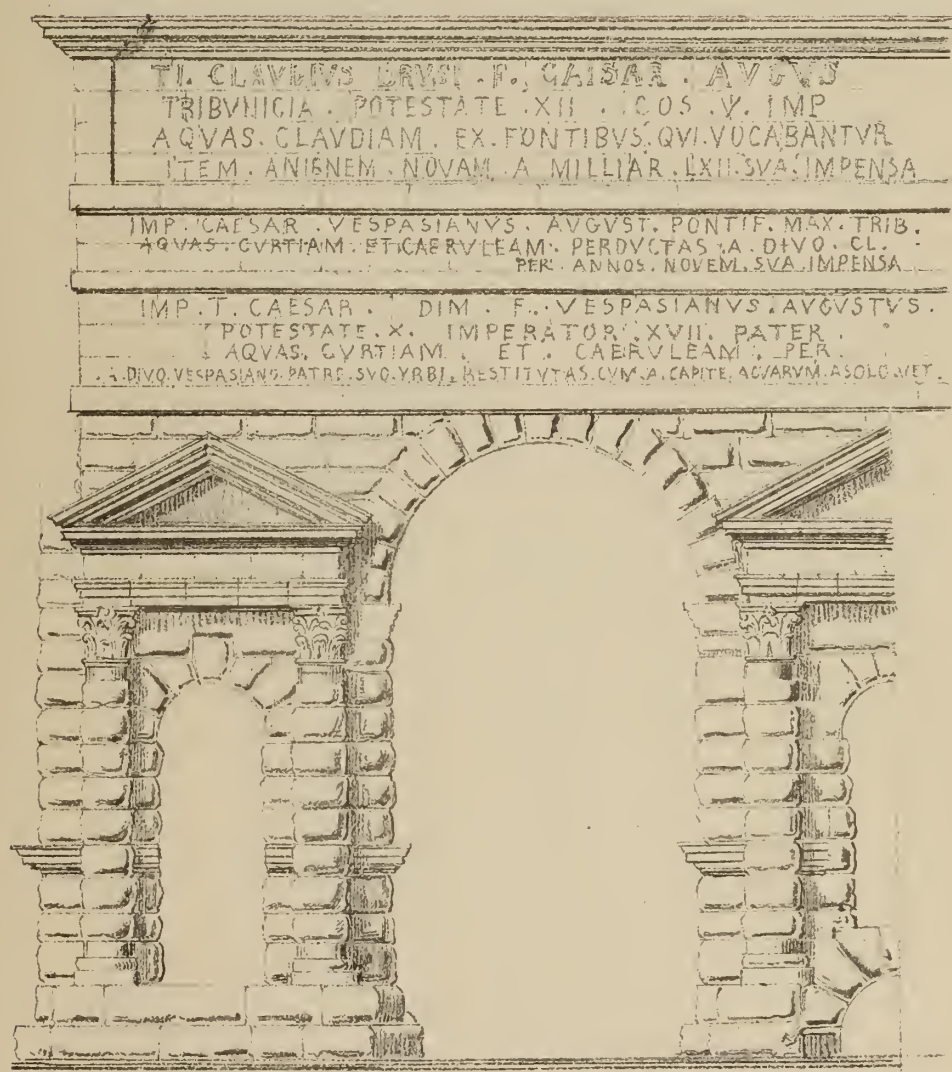 TI. CLAVDIVS DRVSI . F. CAISAR . AVGVS
TRIBVNICIA . POTESTATE . XII . COS . V. IMP
AQVAS. CLAVDIAM. EX. FONTIBVS. QVI. VOCABANTVR
ITEM . ANIENEM . NOVAM . A MILLIAR . LXII. SVA. IMPENSA
IMP. CAESAR . VESPASIANVS. AVGVST. PONTIF. MAX. TRIB.
AQVAS. CVRTIAM. ET. CAERVLEAM. PERDVCTAS. A. DIVO. CL.
PER. ANNOS. NOVEM. SVA. IMPENSA
IMP. T. CAESAR . DIM . F. . VESPASIANVS. AVGVSTVS.
POTESTATE. X. IMPERATOR. XVII. PATER
AQVAS. CVRTIAM . ET . CAERVLEAM . PER.
A. DIVO. VESPASIANO. PATRE. SVO. VRBI. RESTITVTAS. CVM. A. CAPITE. AQVARVM. A SOLO. VET.